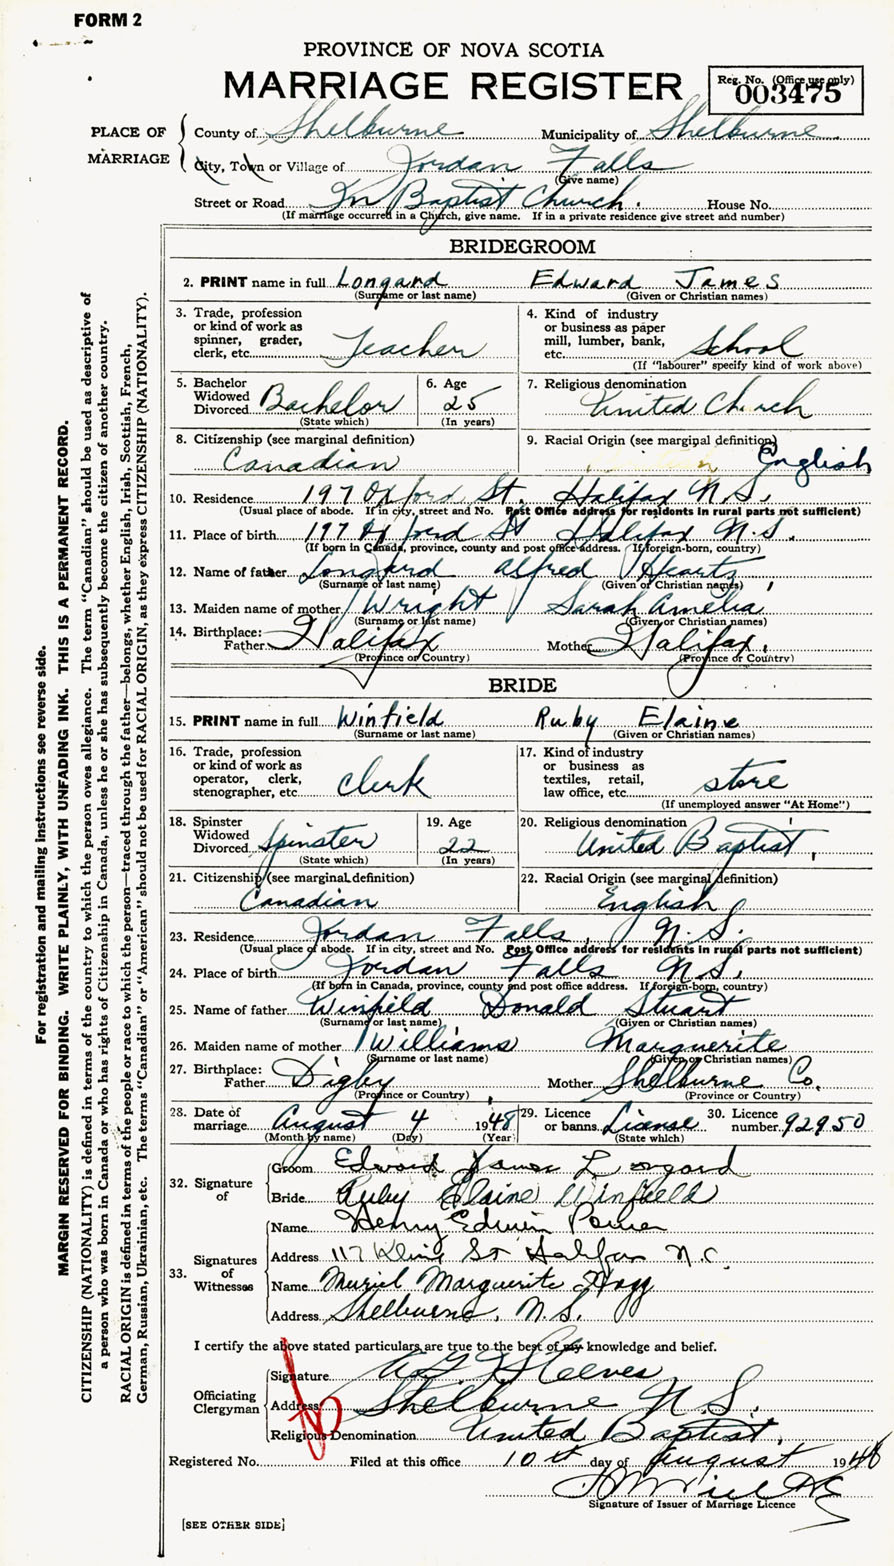 FORM 2
PROVINCE OF NOVA SCOTIA
MARRIAGE REGISTER
Reg. No. (Office use only)
003475
PLACE OF MARRIAGE
County of Shelburne Municipality of Shelburne
City, Town or Village of Jordan Falls
(Give name)
Street or Road In Baptist Church. House No.
(If marriage occurred in a Church, give name. If in a private residence give street and number)
BRIDEGROOM
2. PRINT name in full Longard Edward James
(Surname or last name) (Given or Christian names)
3. Trade, profession
or kind of work as
spinner, grader,
clerk, etc. Teacher
4. Kind of industry
or business as paper
mill, lumber, bank,
etc. School
(If "labourer" specify kind of work above)
5. Bachelor
Widowed
Divorced Bachelor
(State which)
6. Age
25
(In years)
7. Religious denomination
United Church
8. Citizenship (see marginal definition)
Canadian
9. Racial Origin (see marginal definition)
English
10. Residence 197 Oxford St. Halifax N.S.
(Usual place of abode. If in city, street and No. Post Office address for residents in rural parts not sufficient)
11. Place of birth 197 Oxford St Halifax N.S.
(If born in Canada, province, county and post office address. If foreign-born, country)
12. Name of father Longard Alfred Heartz
(Surname or last name) (Given or Christian names)
13. Maiden name of mother Wright Sarah Amelia
(Surname or last name) (Given or Christian names)
14. Birthplace:
Father Halifax Mother Halifax,
(Province or Country) (Province or Country)
BRIDE
15. PRINT name in full Winfield Ruby Elaine
(Surname or last name) (Given or Christian names)
16. Trade, profession
or kind of work as
operator, clerk,
stenographer, etc clerk
17. Kind of industry
or business as
textiles, retail,
law office, etc. store
(If unemployed answer "At Home")
18. Spinster
Widowed
Divorced Spinster
(State which)
19. Age
22
(In years)
20. Religious denomination
United Baptist,
21. Citizenship (see marginal definition)
Canadian
22. Racial Origin (see marginal definition)
English
23. Residence Jordan Falls, N.S.
(Usual place of abode. If in city, street and No. Post Office address for residents in rural parts not sufficient)
24. Place of birth Jordan Falls N.S.
(If born in Canada, province, county and post office address. If foreign-born, country)
25. Name of father Winfield Donald Stuart
(Surname or last name) (Given or Christian names)
26. Maiden name of mother Williams Marguerite
(Surname or last name) (Given or Christian names)
27. Birthplace:
Father Digby Mother Shelburne Co.
(Province or Country) (Province or Country)
28. Date of
marriage August 4 1948
(Month by name) (Day) (Year)
29. Licence
or banns License
(State which)
30. Licence
number 92950
32. Signature of
Groom Edward James Longard
Bride Ruby Elaine Winfield
33. Signatures of Witnesses
Name Henry Edwin
Address 117 Kline St Halifax
Name Muriel Marguerite Hogg
Address Shelburne, N.S.
I certify the above stated particulars are true to the best of my knowledge and belief.
Officiating Clergyman
Signature Steeves
Address Shelburne N.S.
Religious Denomination United Baptist,
Registered No. Filed at this office 10th day of August 1948
Signature of Issuer of Marriage Licence
[SEE OTHER SIDE]
For registration and mailing instructions see reverse side.
MARGIN RESERVED FOR BINDING. WRITE PLAINLY, WITH UNFADING INK. THIS IS A PERMANENT RECORD.
CITIZENSHIP (NATIONALITY) is defined in terms of the country to which the person owes allegiance. The term "Canadian" should be used as descriptive of
a person who was born in Canada or who has rights of Citizenship in Canada, unless he or she has subsequently become the citizen of another country.
RACIAL ORIGIN is defined in terms of the people or race to which the person—traced through the father—belongs, whether English, Irish, Scottish, French,
German, Russian, Ukrainian, etc. The terms "Canadian" or "American" should not be used for RACIAL ORIGIN, as they express CITIZENSHIP (NATIONALITY).